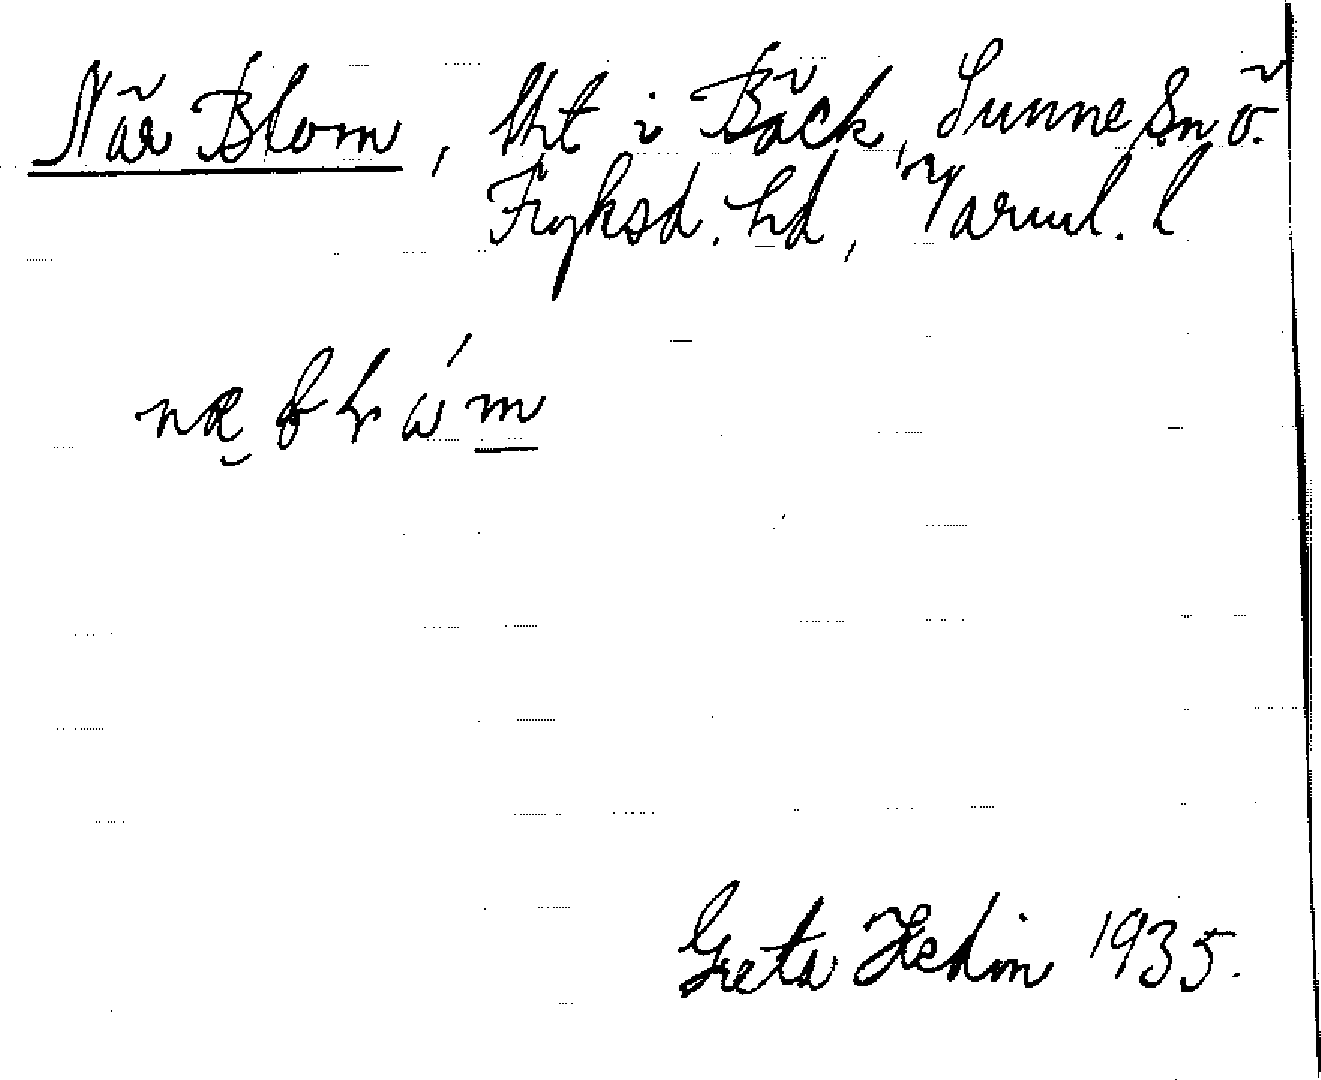 När Blom, lht i Bäck, Sunne Sn ö.
Fryksd. hd, Värml. l
Greta Hedin 1935.